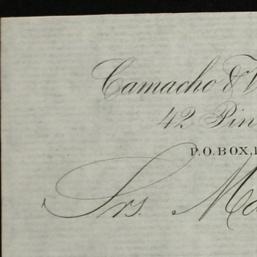 Camacho &
42 Pin
P.O. BOX,
Srs. Mo